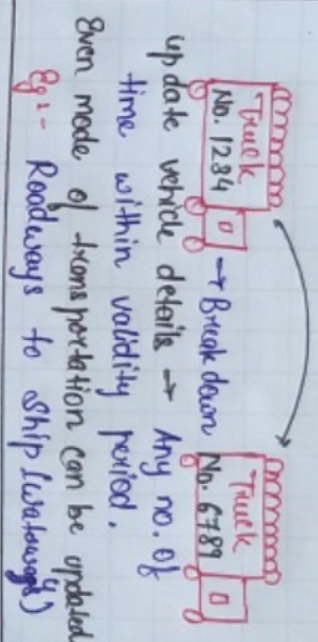 Truck
No. 1234
→ Breakdown
Truck
No. 6789
update vehicle details → Any no. of
time within validity period.
Even mode of transportation can be updated
Eg:- Roadways to Ship (waterways)